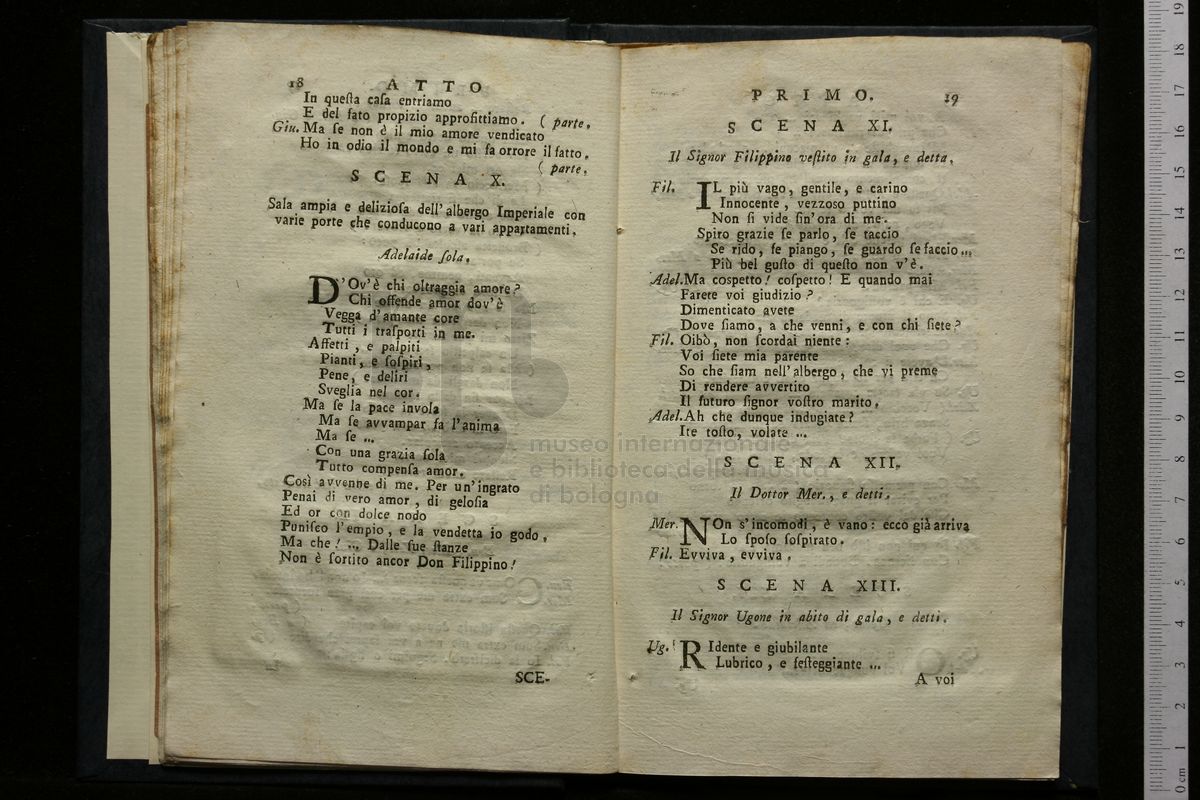 18 ATTO
In queſta caſa entriamo
E del fato propizio approfittiamo. ( parte.
Giu. Ma ſe non è il mio amore vendicato
Ho in odio il mondo e mi fa orrore il fatto.
( parte.
SCENA X.
Sala ampia e delizioſa dell'albergo Imperiale con
varie porte che conducono a vari appartamenti.
Adelaide ſola.
D'Ov'è chi oltraggia amore?
Chi offende amor dov'è
Vegga d'amante core
Tutti i traſporti in me.
Affetti, e palpiti
Pianti, e ſoſpiri,
Pene, e deliri
Sveglia nel cor.
Ma ſe la pace invola
Ma ſe avvampar fa l'anima
Ma ſe ...
Con una grazia ſola
Tutto compenſa amor.
Così avvenne di me. Per un'ingrato
Penai di vero amor, di geloſia
Ed or con dolce nodo
Puniſco l'empio, e la vendetta io godo,
Ma che! ... Dalle ſue ſtanze
Non è ſortito ancor Don Filippino!
SCE-
PRIMO. 19
SCENA XI.
Il Signor Filippino veſtito in gala, e detta.
Fil. IL più vago, gentile, e carino
Innocente, vezzoso puttino
Non ſi vide ſin'ora di me.
Spiro grazie ſe parlo, ſe taccio
Se rido, ſe piango, ſe guardo ſe faccio...
Più bel guſto di queſto non v'è.
Adel. Ma coſpetto! coſpetto! E quando mai
Farete voi giudizio?
Dimenticato avete
Dove ſiamo, a che venni, e con chi ſiete?
Fil. Oibò, non ſcordai niente:
Voi ſiete mia parente
So che ſiam nell'albergo, che vi preme
Di rendere avvertito
Il futuro ſignor voſtro marito.
Adel. Ah che dunque indugiate?
Ite toſto, volate ...
SCENA XII.
Il Dottor Mer., e detti.
Mer. NOn s'incomodi, è vano: ecco già arriva
Lo ſpoſo ſoſpirato.
Fil. Evviva, evviva.
SCENA XIII.
Il Signor Ugone in abito di gala, e detti.
Ug. RIdente e giubilante
Lubrico, e feſteggiante ...
A voi
museo internazionale
e biblioteca della musica
di bologna
0 cm 1 2 3 4 5 6 7 8 9 10 11 12 13 14 15 16 17 18 19